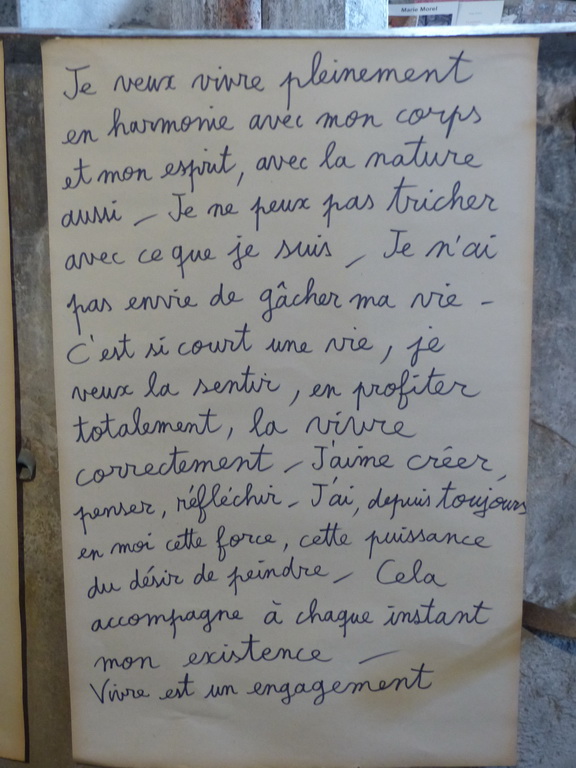 Marie Morel
Je veux vivre pleinement
en harmonie avec mon corps
et mon esprit, avec la nature
aussi _ Je ne peux pas tricher
avec ce que je suis _ Je n'ai
pas envie de gâcher ma vie -
C'est si court une vie, je
veux la sentir, en profiter
totalement, la vivre
correctement _ J'aime créer,
penser, réfléchir _ J'ai, depuis toujours
en moi cette force, cette puissance
du désir de peindre _ Cela
accompagne à chaque instant
mon existence _
Vivre est un engagement